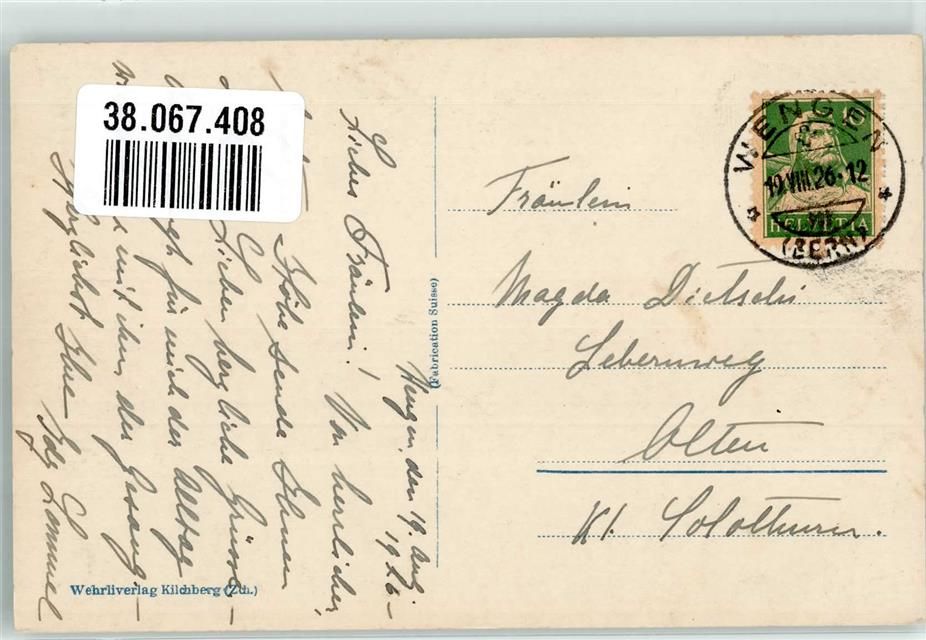 38.067.408
Wengen, den 19. Aug.
1926.
Liebes Fräulein! Von herrlicher,
Höhe sende Ihnen
Lichen herzliche Grüsse.
für mich der Alltag
mit ihm der Gesang.
Herzlichst Ihre Edg. Lommel
Wehrliverlag Kilchberg (Zch.)
(Fabrication Suisse)
WENGEN
19.VIII.26.12
(BERN)
HELVETIA
Fräulein
Magda Dietschi
Lebernweg
Olten
Kt. Solothurn.